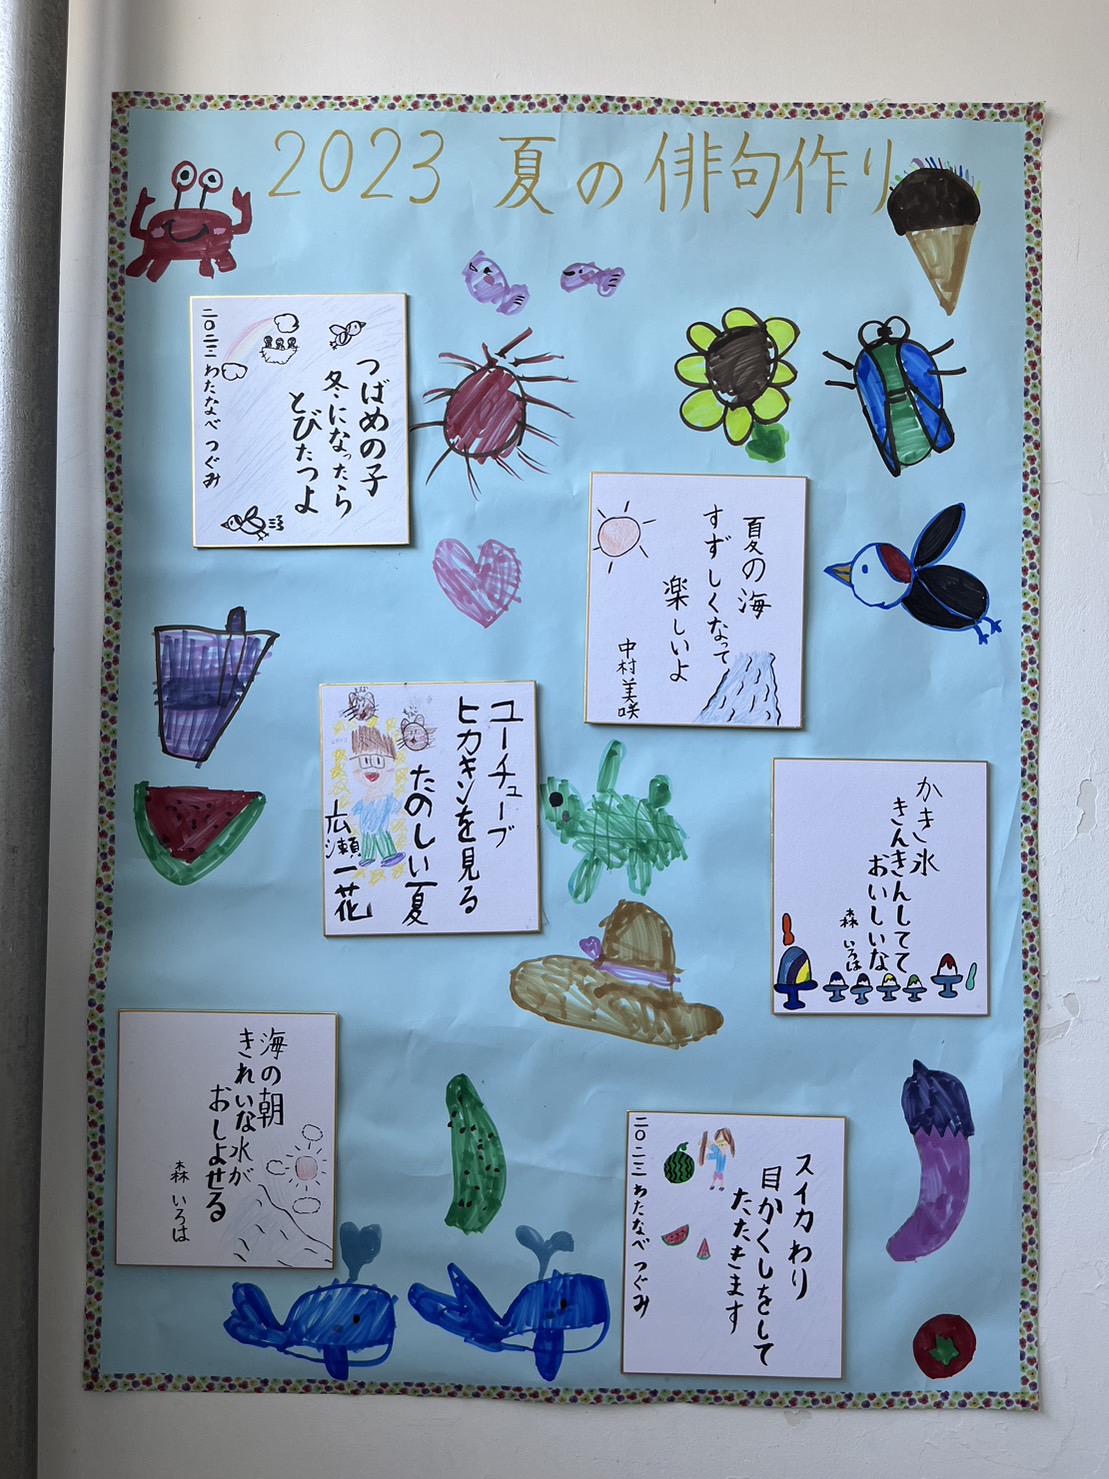 2023 夏の俳句作り
つばめの子
冬になったら
とびたつよ
二〇二三 わたなべ つぐみ
夏の海
すずしくなって
楽しいよ
中村美咲
ユーチューブ
ヒカキンを見る
たのしい夏
広瀬一花
かき氷
きんきんしてて
おいしいな
森 いろは
海の朝
きれいな水が
おしよせる
森 いろは
スイカわり
目かくしをして
たたきます
二〇二三 わたなべ つぐみ